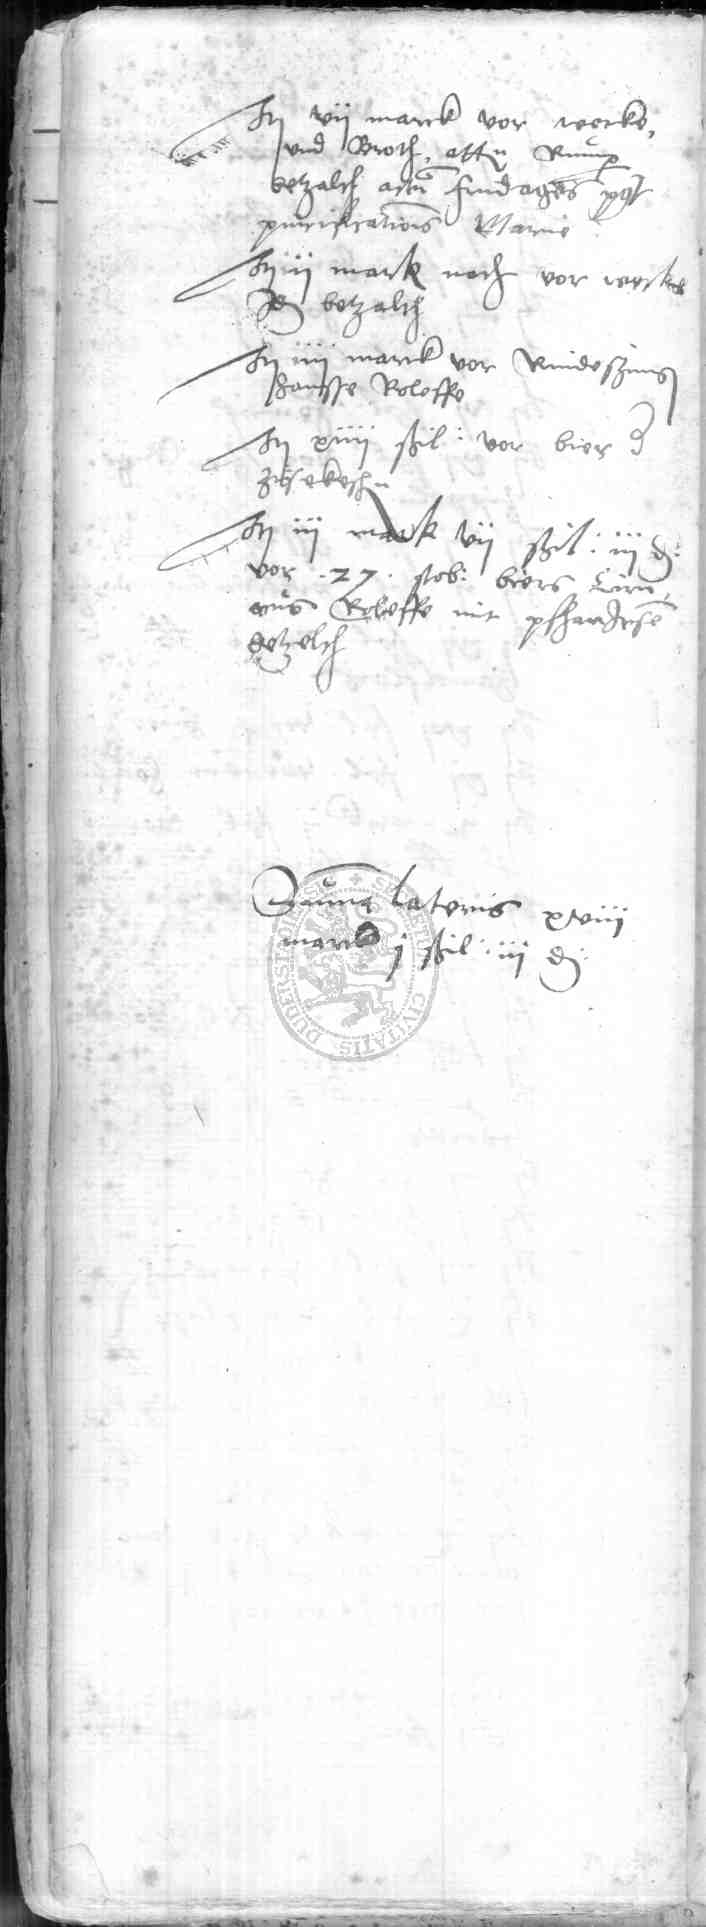 It vij marck vor wecke,
vnd Broth,
betzalth actu fridages post
purificationis Marie
It ij marck noch vor wecke
betzalth
It iiij marck vor
Hansse Roleffe
It xiiij ßil: vor bier
It iij marck vij ßil: iij d:
vor .27. stob: biers
Roleffe mit
getzelth
Summa lateris xviij
marck j ßil: iij d:
SI CIVITATIS DUDERSTADENSIS